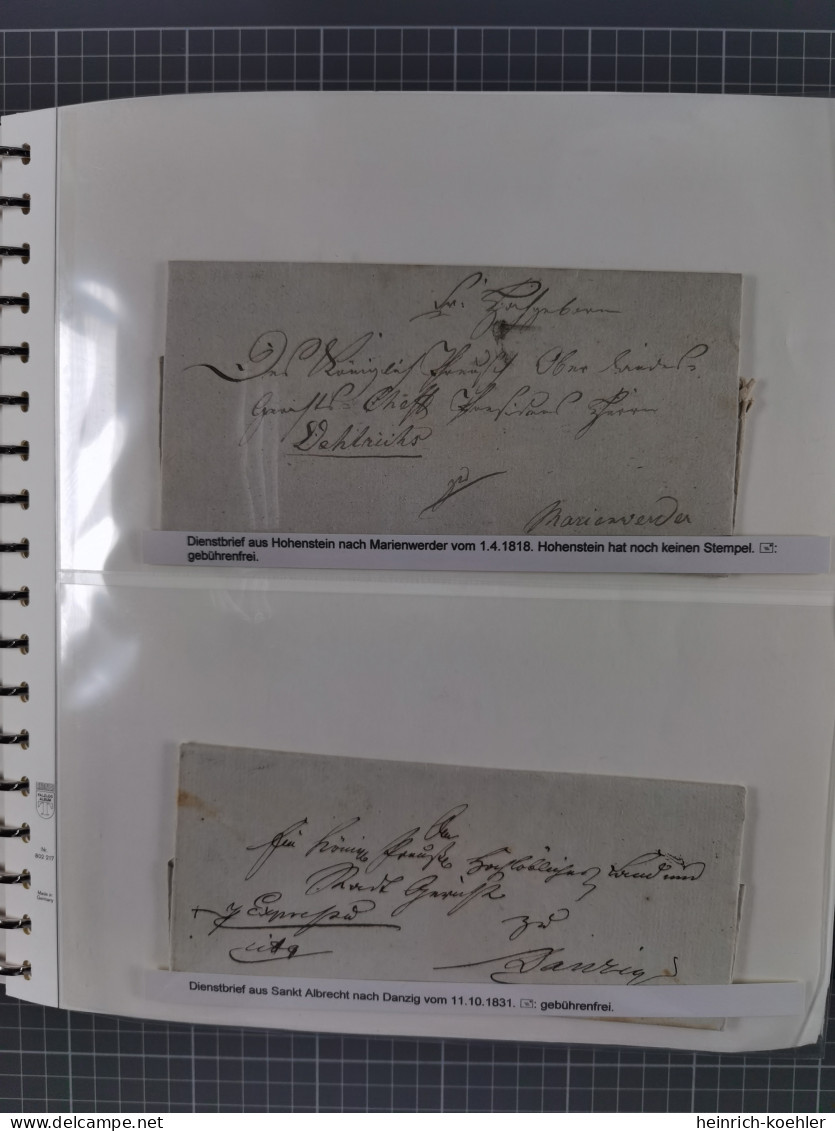 Sr. Hochgeborn
Des Königlich Preusch Ober Landes-
Gerichts-Cheff Praesidues Herrn
zu
Marienwerder
Dienstbrief aus Hohenstein nach Marienwerder vom 1.4.1818. Hohenstein hat noch keinen Stempel. ✉:
gebührenfrei.
An
Ein König Preuß Hochlöbliches Land und
Stadt Gericht
zu
citq
Danzig
Dienstbrief aus Sankt Albrecht nach Danzig vom 11.10.1831. ✉: gebührenfrei.
Made in
Germany
www.delcampe.net
heinrich-koehler